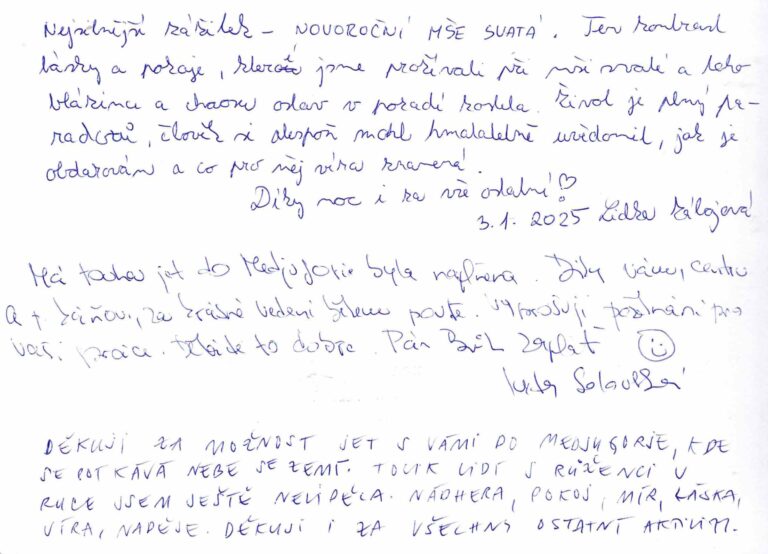 Nejsilnější zážitek – NOVOROČNÍ MŠE SVATÁ. Ten kontrast
lásky a pokoje, které jsme prožívali při mši svaté a toho
blázince a chaosu oslav v pořadí kostela. Život je plný pa-
radoxů, člověk si alespoň mohl hmatatelně uvědomil, jak je
obdarován a co pro něj víra znamená.
Díky moc i za vše ostatní!
3.1. 2025 Lidka Zálojová
Má touha jet do Medjugorie byla naplněna. Díky vámu, centru
a p. , za krásné vedení během poutě. Vyprošuji požehnání pro
vaši práci. Děláte to dobře. Pán Bůh zaplať
DĚKUJI ZA MOŽNOST JET S VÁMI DO MEDJUGORJE, KDE
SE POTKÁVÁ NEBE SE ZEMÍ. TOLIK LIDÍ S RŮŽENCI V
RUCE JSEM JEŠTĚ NEVIDĚLA. NÁDHERA, POKOJ, MÍR, LÁSKA,
VÍRA, NADĚJE. DĚKUJI I ZA VŠECHNY OSTATNÍ AKTIVITY.